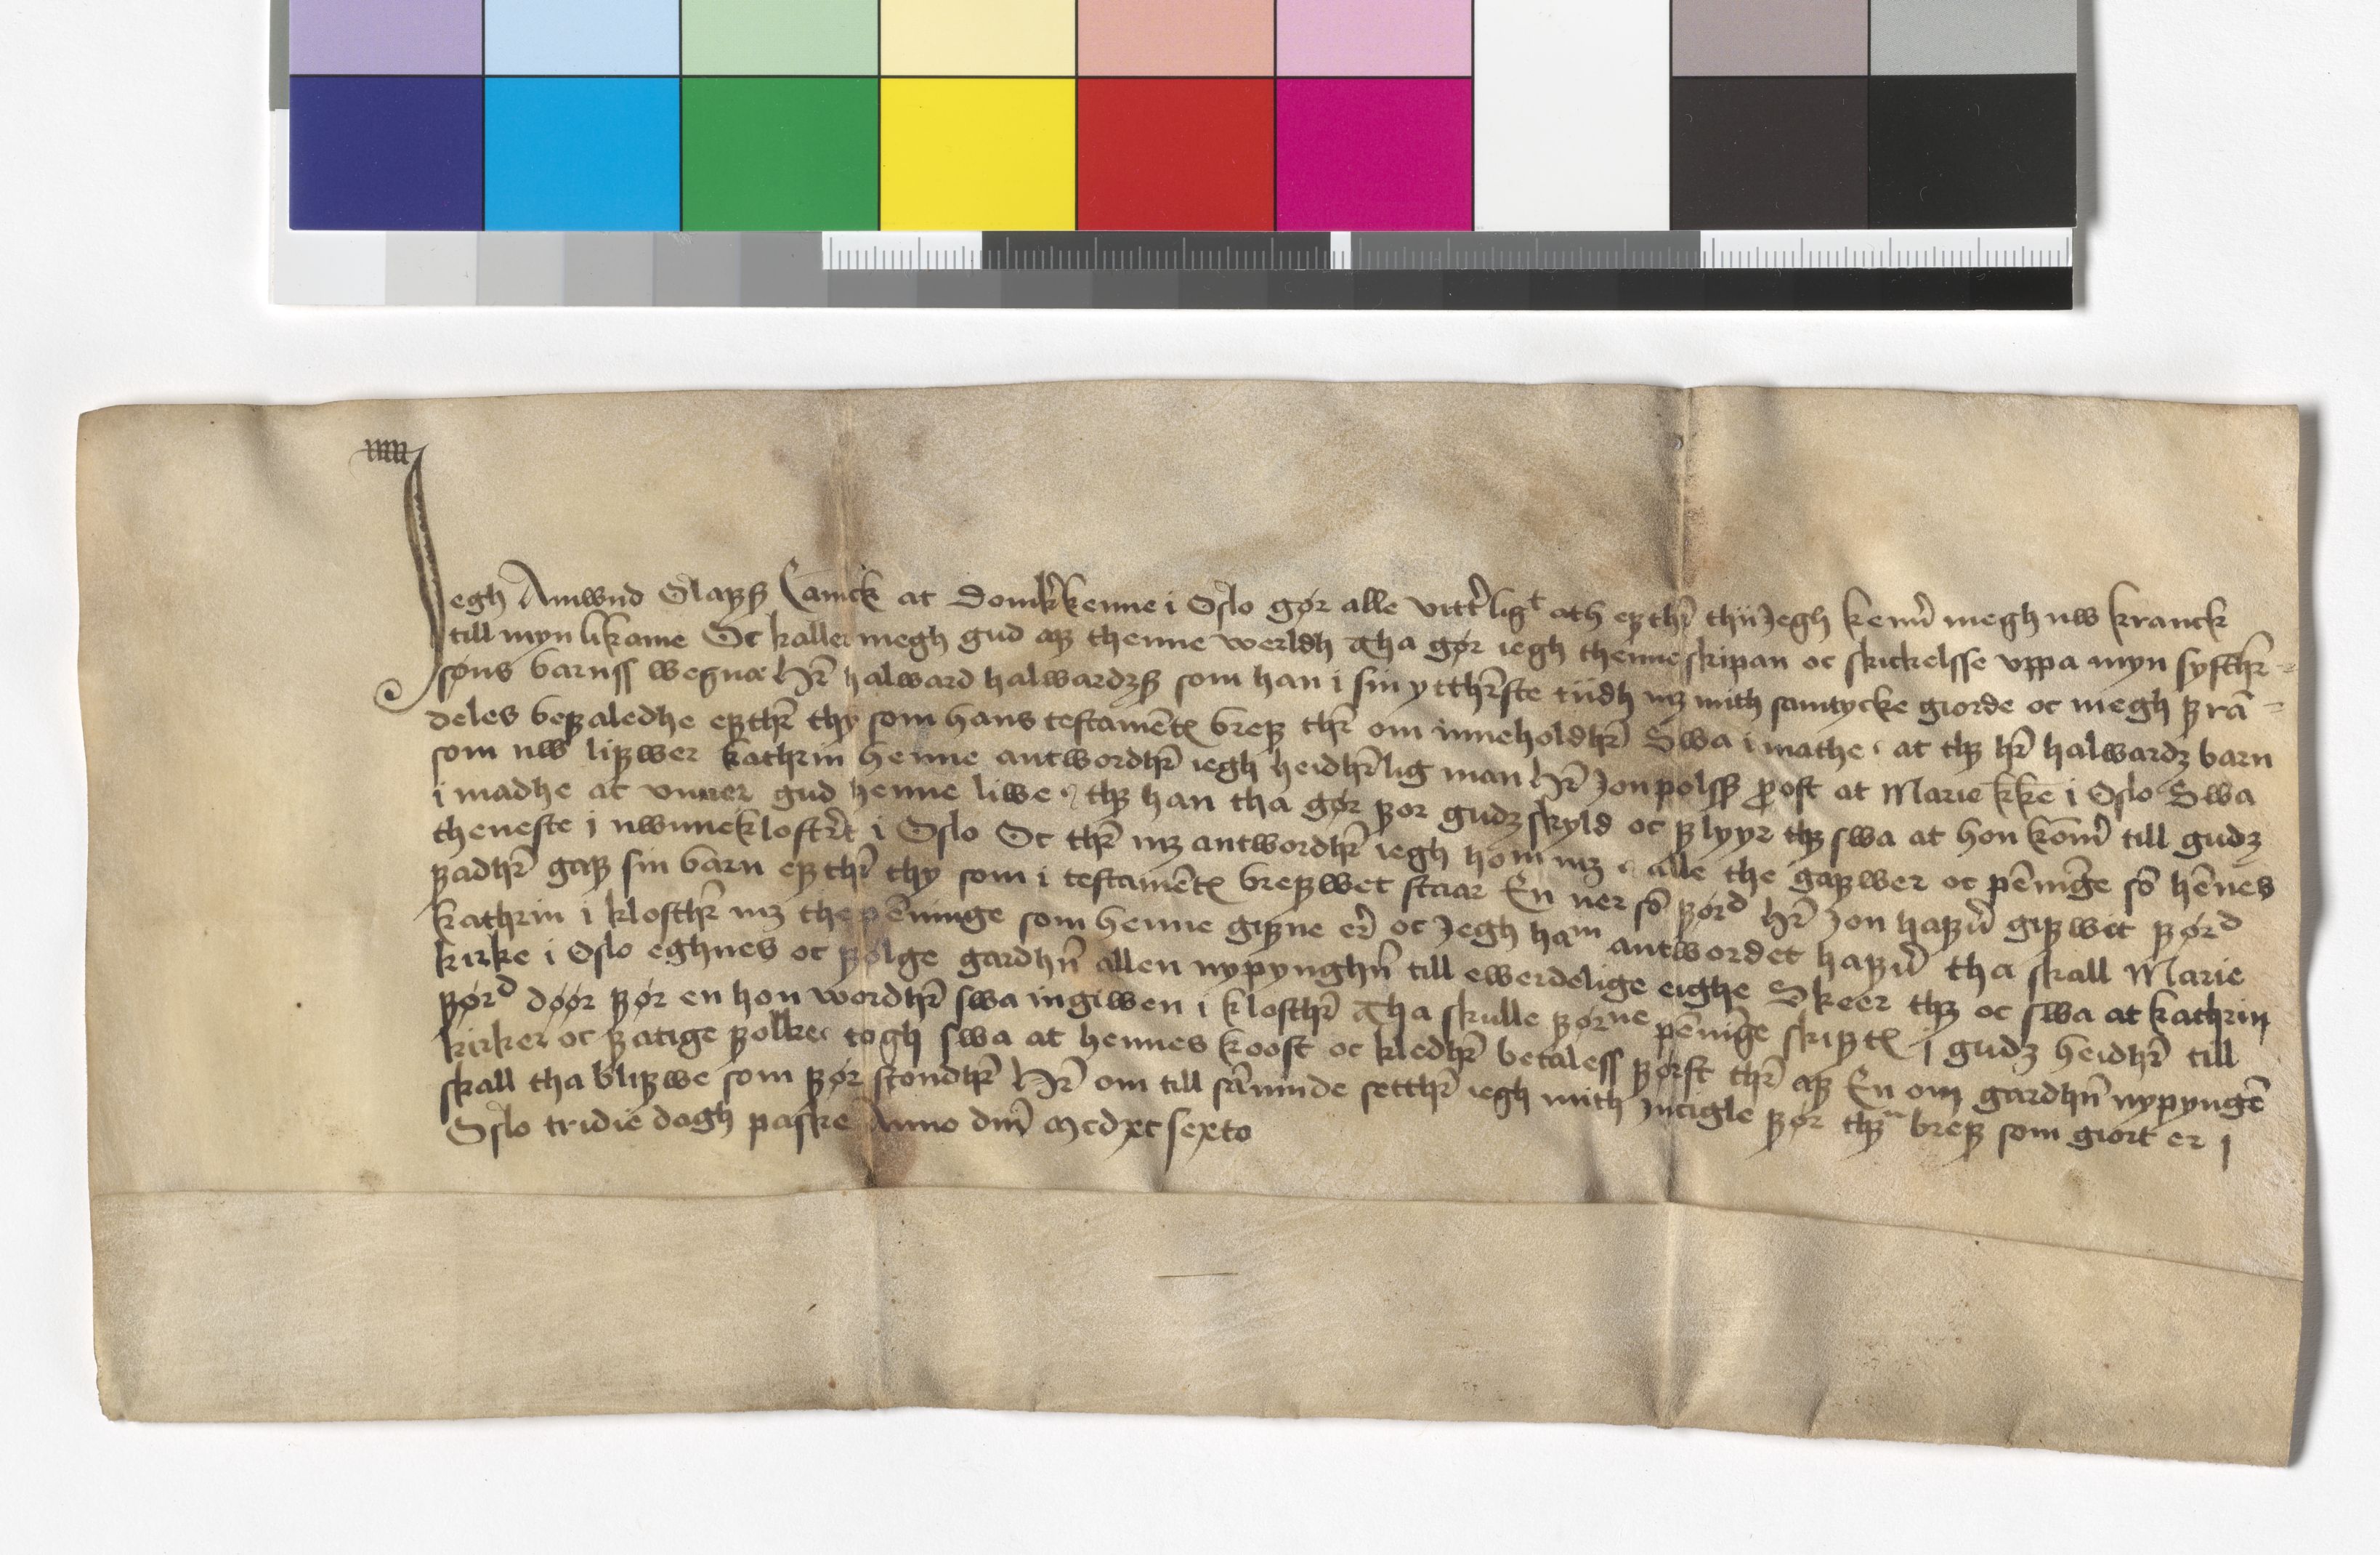 Jegh Amwnd Olaffß Canick at Domkirkenne i Oslo gør alle vitterligt ath effther thii Jegh kenner megh nw kranck
till myn likame Oc kaller megh gud aff thenne werldh Tha gør iegh thenne skipan oc skickelsse vppa myn systher-
søns barnss wegna Her halward halwardzß som han i sin ytthersthe tiidh mz mith samtycke giorde oc megh fram-
deles befaledhe effther thy som hans testamentz breff ther om inneholdher Swa i mathe at thz her halwardz barn
som nw liffwer kathrin henne antwordher iegh heidherlig man Her Jon polsß prost at Marie kirke i Oslo Swa
i madhe at vnner gud henne liwe thz han tha gør for gudz skyld oc flyyr thz swa at hon kommer till gudz
theneste i nwnneklostret i Oslo Oc ther mz antwordher iegh honum mz alle the gaffwer oc peninge som hennes
fadher gaff sin barn effther thy som i testamentz breffwet staar En ner som førd her Jon haffuer giffwit førd
kathrin i klosther mz the peninge som henne giffne er oc Jegh ham antwordet haffuer tha skall Marie
kirke i Oslo eghnes oc følge gardhen allen nypynghen till ewerdelige eighe Skeer thz oc swa at kathrin
førd døør før en hon wordher swa ingiwen i klosther Tha skulle førne peninge skifftz i gudz heidher till
kirker oc fatige folke togh swa at hennes koost oc kledher betaless først ther aff En om gardhen nypyngen
skall tha bliffwe som før stondher Her om till sanninde setther iegh mith Jncigle før thetta breff som giort er j
Oslo tridie dagh paske Anno dni Mcdxc sexto